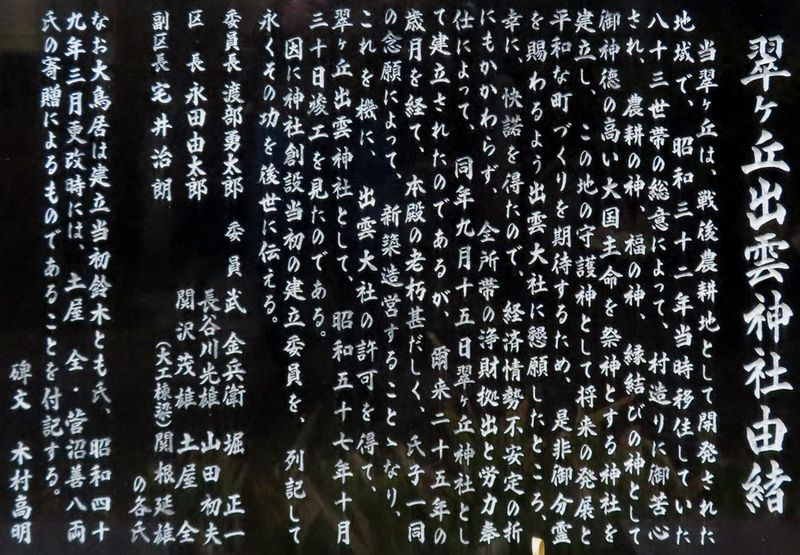 翠ヶ丘出雲神社由緒
当翠ヶ丘は、戦後農耕地として開発された
地域で、昭和三十二年当時移住していた
八十三世帯の総意によって、村造りに御苦心
され、農耕の神、福の神、縁結びの神として
御神徳の高い大国主命を祭神とする神社を
建立し、この地の守護神として将来の発展と
平和な町づくりを期待するため、是非御分霊
を賜わるよう出雲大社に懇願したところ、
幸に、快諾を得たので、経済情勢不安定の折
にもかかわらず、全所帯の浄財拠出と労力奉
仕によって、同年九月十五日翠ヶ丘神社とし
て建立されたのであるが、爾来二十五年の
歳月を経て、本殿の老朽甚だしく、氏子一同
の念願によって、新築造営することゝなり、
これを機に、出雲大社の許可を得て、
翠ヶ丘出雲神社として、昭和五十七年十月
三十日竣工を見たのである。
因に神社創設当初の建立委員を、列記して
永くその功を後世に伝える。
委員長 渡部勇太郎 委員 武金兵衛 堀正一
区長 永田由太郎 長谷川光雄 山田初夫
副区長 宅井治朗 関沢茂雄 土屋全
(大工棟梁)関根延雄
の各氏
なお大鳥居は建立当初鈴木とも氏、昭和四十
九年三月更改時には、土屋全・菅沼善八両
氏の寄贈によるものであることを付記する。
碑文 木村高明